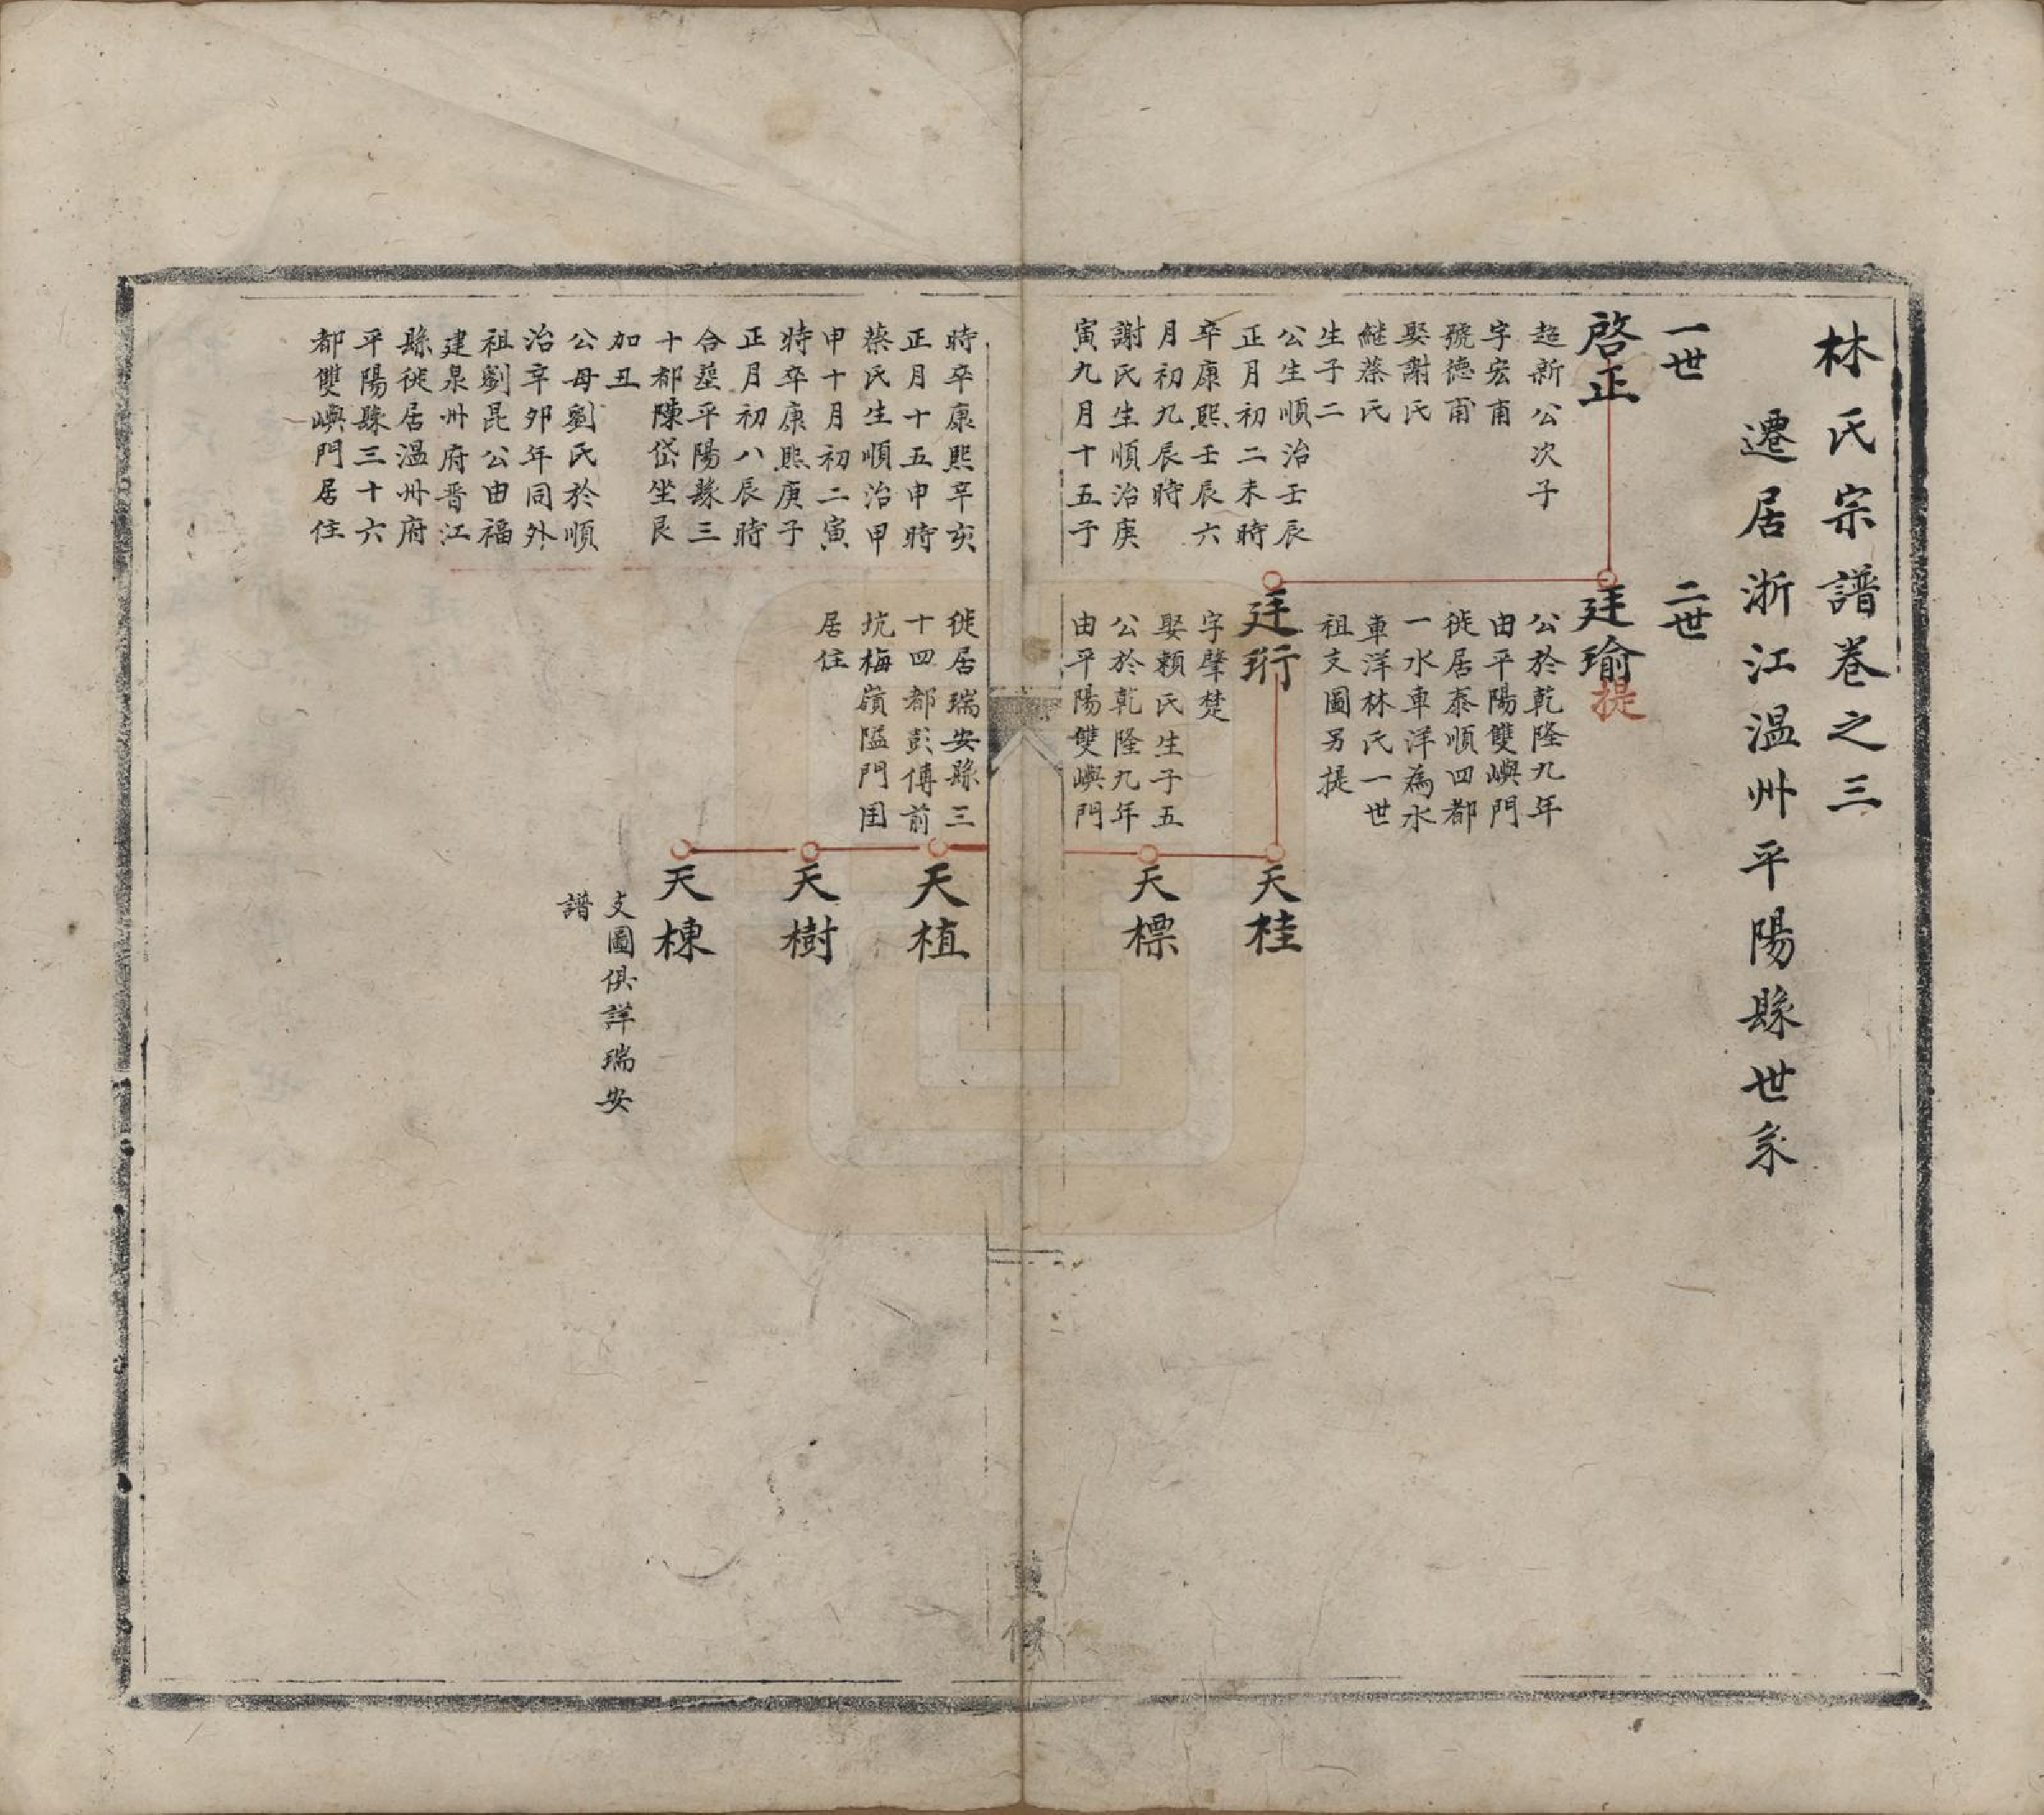 林氏宗譜卷之三
遷居浙江溫州平陽縣世系
一世
啓正
超新公次子
字宏甫
號德甫
娶謝氏
繼蔡氏
生子二
公生順治壬辰
正月初二未時
卒康熙壬辰六
月初九辰時
謝氏生順治庚
寅九月十五子
時卒康熙辛亥
正月十五申時
蔡氏生順治甲
申十月初二寅
時卒康熙庚子
正月初八辰時
合塟平陽縣三
十都陳岱坐艮
加丑
公母劉氏於順
治辛夘年同外
祖劉昆公由福
建泉州府晋江
縣徙居溫州府
平陽縣三十六
都雙嶼門居住
二世
廷瑜
提
公於乾隆九年
由平陽雙嶼門
徙居泰順四都
一水車洋為水
車洋林氏一世
祖支圖另提
廷珩
字聲楚
娶賴氏生子五
公於乾隆九年
由平陽雙嶼門
徙居瑞安縣三
十四都彭傅前
坑梅嶺隘門
居住
天桂
天標
天植
天樹
天棟
支圖俱詳瑞安
譜
重修